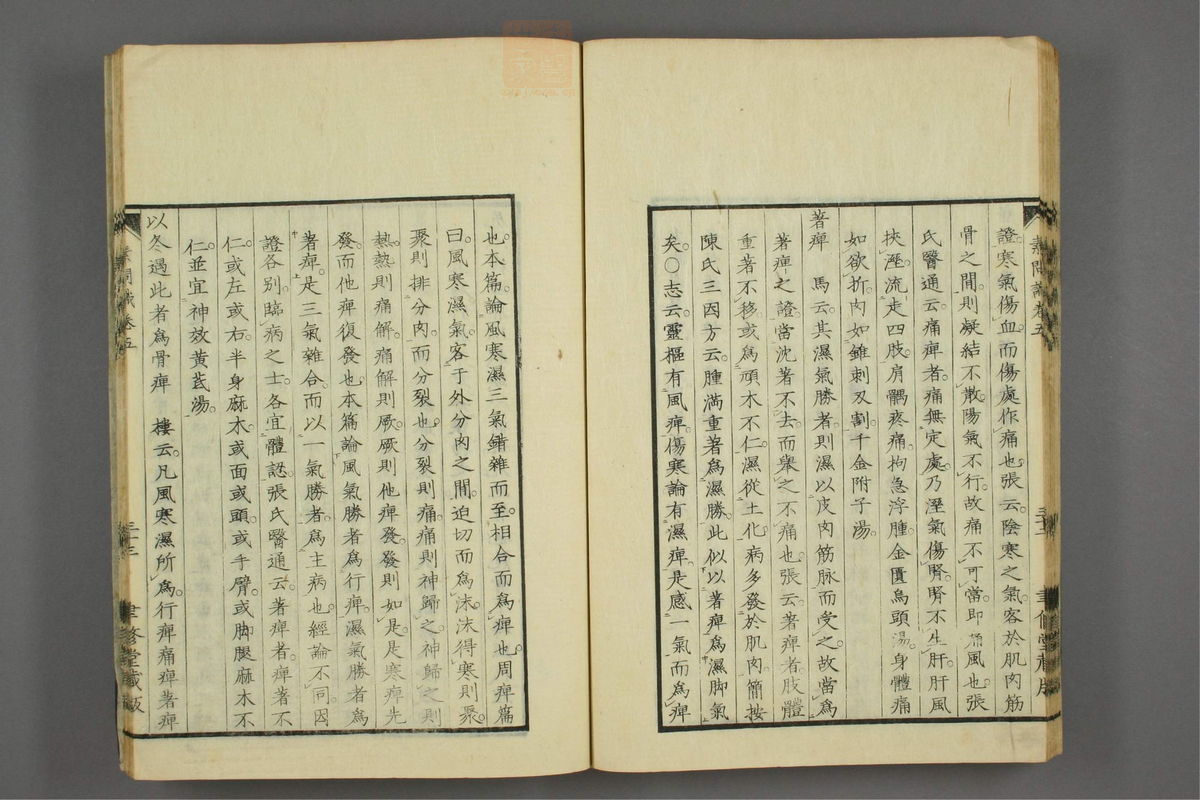 證寒氣傷血而傷處作痛也張云陰寒之氣客於肌肉筋
骨之間則凝結不散陽氣不行故痛不可當即痛風也張
氏醫通云痛痺者痛無定處乃溼氣傷腎腎不生肝肝風
挾溼流走四肢肩髃疼痛拘急浮腫金匱烏頭湯身體痛
如欲折肉如錐刺刄割千金附子湯
著痺　馬云其濕氣勝者則濕以皮肉筋脉而受之故當爲
著痺之證當沈著不去而舉之不痛也張云著痺者肢體
重著不移或爲頑木不仁濕從土化病多發於肌肉簡按
陳氏三因方云腫滿重著爲濕勝此似以著痺爲濕脚氣
矣○志云靈樞有風痺傷寒論有濕痺是感一氣而爲痺
也本篇論風寒濕三氣錯雜而至相合而爲痺也周痺篇
曰風寒濕氣客于外分肉之間迫切而爲沫沫得寒則聚
聚則排分肉而分裂也分裂則痛痛則神歸之神歸之則
熱熱則痛解痛解則厥厥則他痺發發則如是是寒痺先
發而他痺復發也本篇論風氣勝者爲行痺濕氣勝者爲
著痺是三氣雜合而以一氣勝者爲主病也經論不同因
證各別臨病之士各宜體認張氏醫通云著痺者痺著不
仁或左或右半身麻木或面或頭或手臂或脚腿麻木不
仁並宜神效黃芪湯
以冬遇此者爲骨痺　樓云凡風寒濕所爲行痺痛痺著痺
素問識卷五
三十三
聿修堂藏版